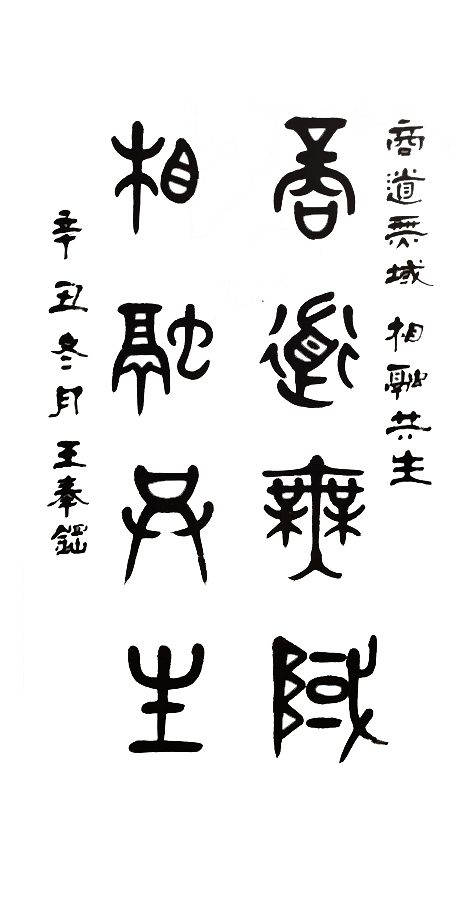 商道無域相融共生
商道無域
相融共生
辛丑冬月王奉鐳